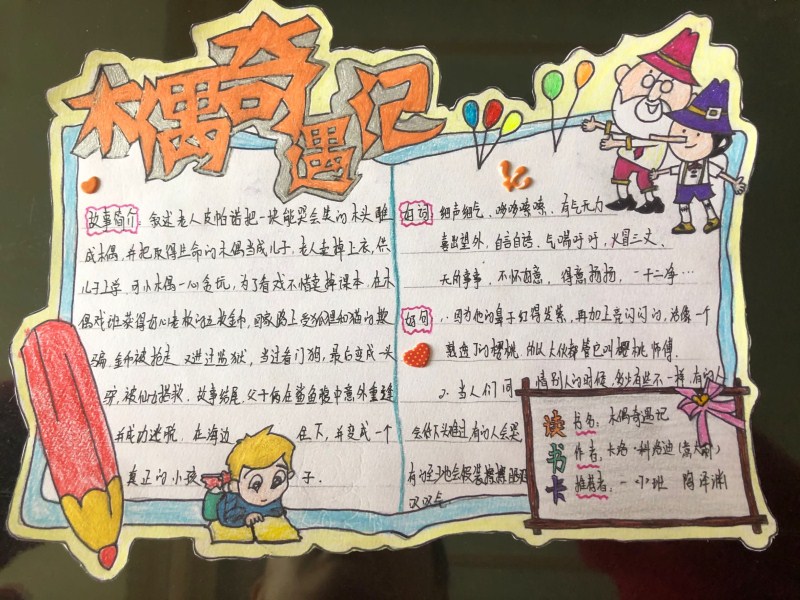 木偶奇遇记
故事简介: 叙述老人皮帕诺把一块能哭会笑的木头雕
成木偶,并把取得生命的木偶当成儿子。老人卖掉上衣,供
儿子上学,可小木偶一心贪玩,为了看戏不惜卖掉课本,在木
偶戏班获得好心老板的五枚金币,回家路上受狐狸和猫的欺
骗,金币被抢走,又进过监狱,当过看门狗,最后变成一头
驴,被仙女拯救。故事结尾,父子俩在鲨鱼腹中意外重逢
并成功逃脱,在海边 在下,并变成一个
真正的小孩子.
好词: 细声细气、哆哆嗦嗦、有气无力
喜出望外、自言自语、气喘吁吁,火冒三丈、
无所事事、不怀好意、得意扬扬、一干二净…
好句: 1.因为他的鼻子红得发紫,再加上亮闪闪的,活像一个
熟透了的樱桃,所以大伙都管它叫樱桃师傅.
2、当人们同情别人的时候,多少有些不一样,有的人
会低下头难过,有的人会哭
有的至少也会假装擦擦眼
读书卡
书名: 木偶奇遇记
作者: 卡洛·科洛迪(意大利)
推荐者: 一小班 陶泽渊